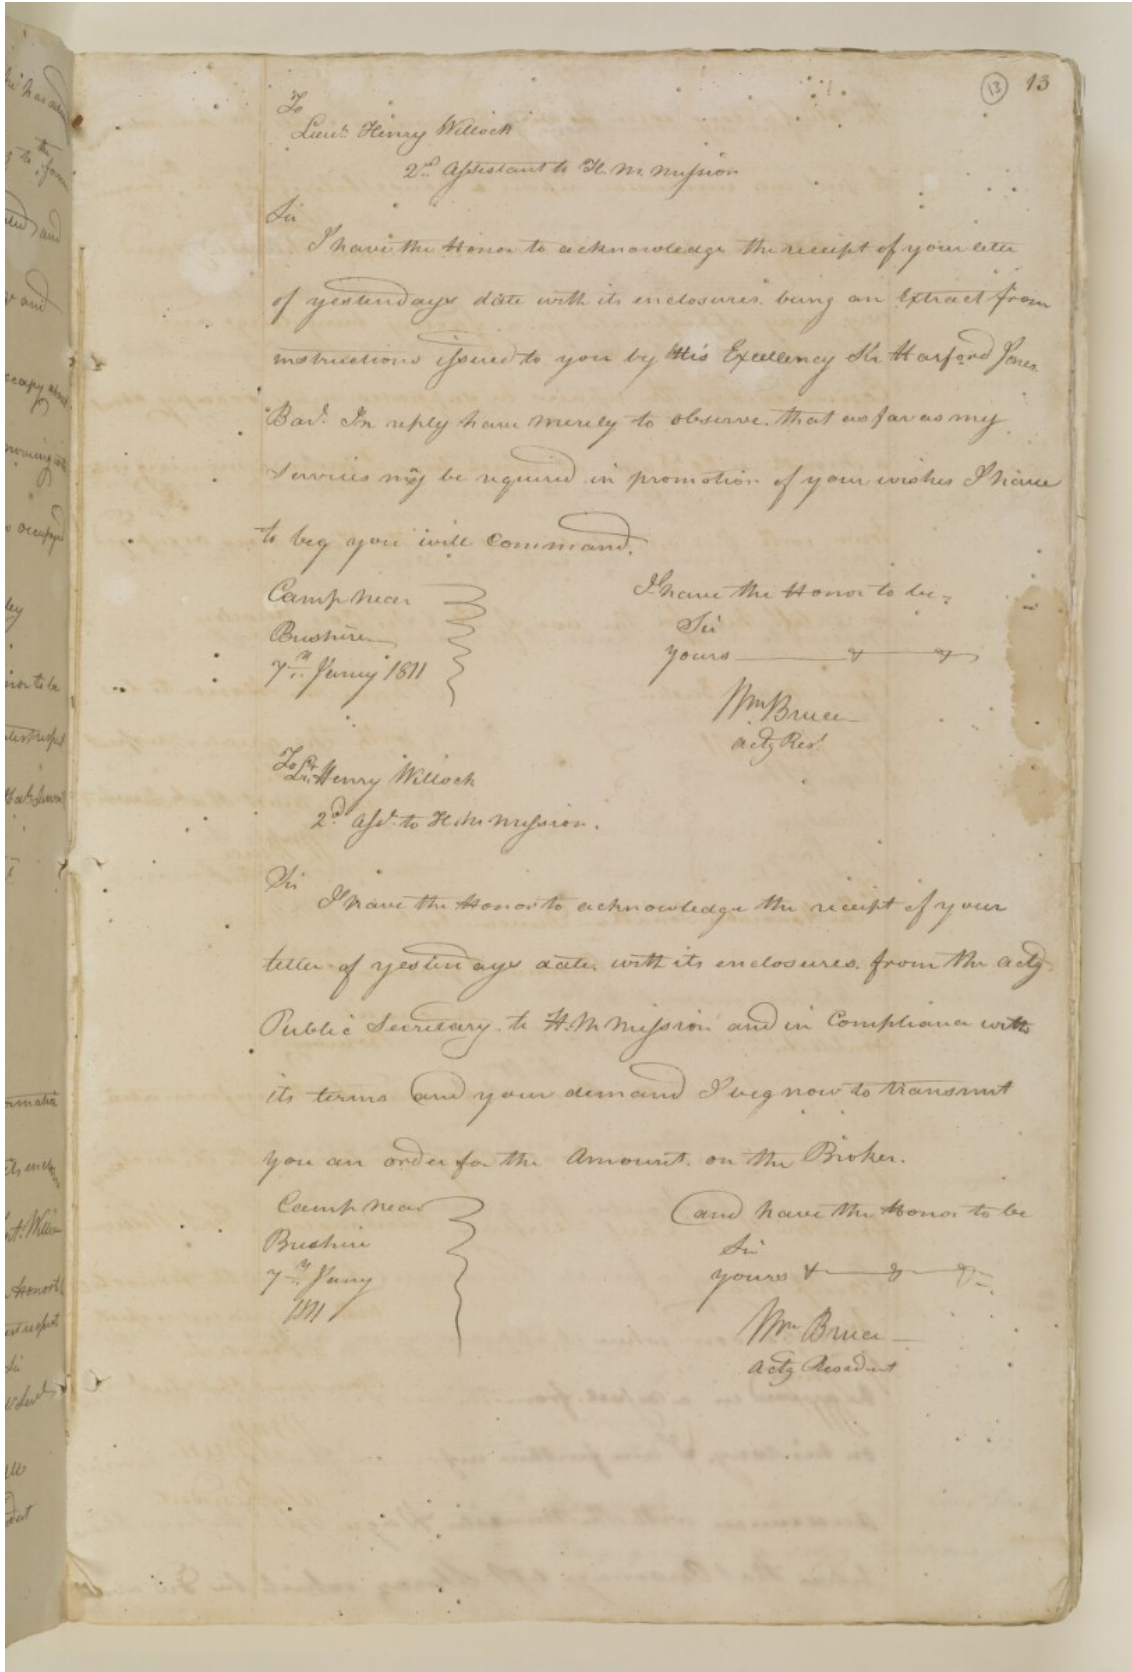 13 13
To
Lieut. Henry Willock
2nd Assistant to H. M. Mission
Sir
I have the Honor to acknowledge the receipt of your letter
of yesterdays date with its enclosures being an Extract from
instructions issued to you by His Excellency Sir Harford Jones
Bart. In reply have merely to observe that as far as my
services may be required in promotion of your wishes I have
to beg you will Command.
Camp near
Bushire
7th Janry 1811
I have the Honor to be,
Sir
yours
Wm Bruce
actg Rest.
To Lt. Henry Willock
2d Asst. to H. M. Mission.
Sir
I have the Honor to acknowledge the receipt of your
letter of yesterdays date, with its enclosures from the actg
Public Secretary to H. M Mission and in Compliance with
its terms and your demand I beg now to transmit
you an order for the Amount on the Broker.
Camp near
Bushire
7th Janry
1811
and have the Honor to be
Sir
yours
Wm Bruce
actg Resident